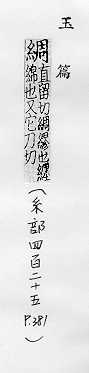 玉篇
綢直留切綢繆也纏
綿也又它刀切
（糸部四百二十五 P.381）